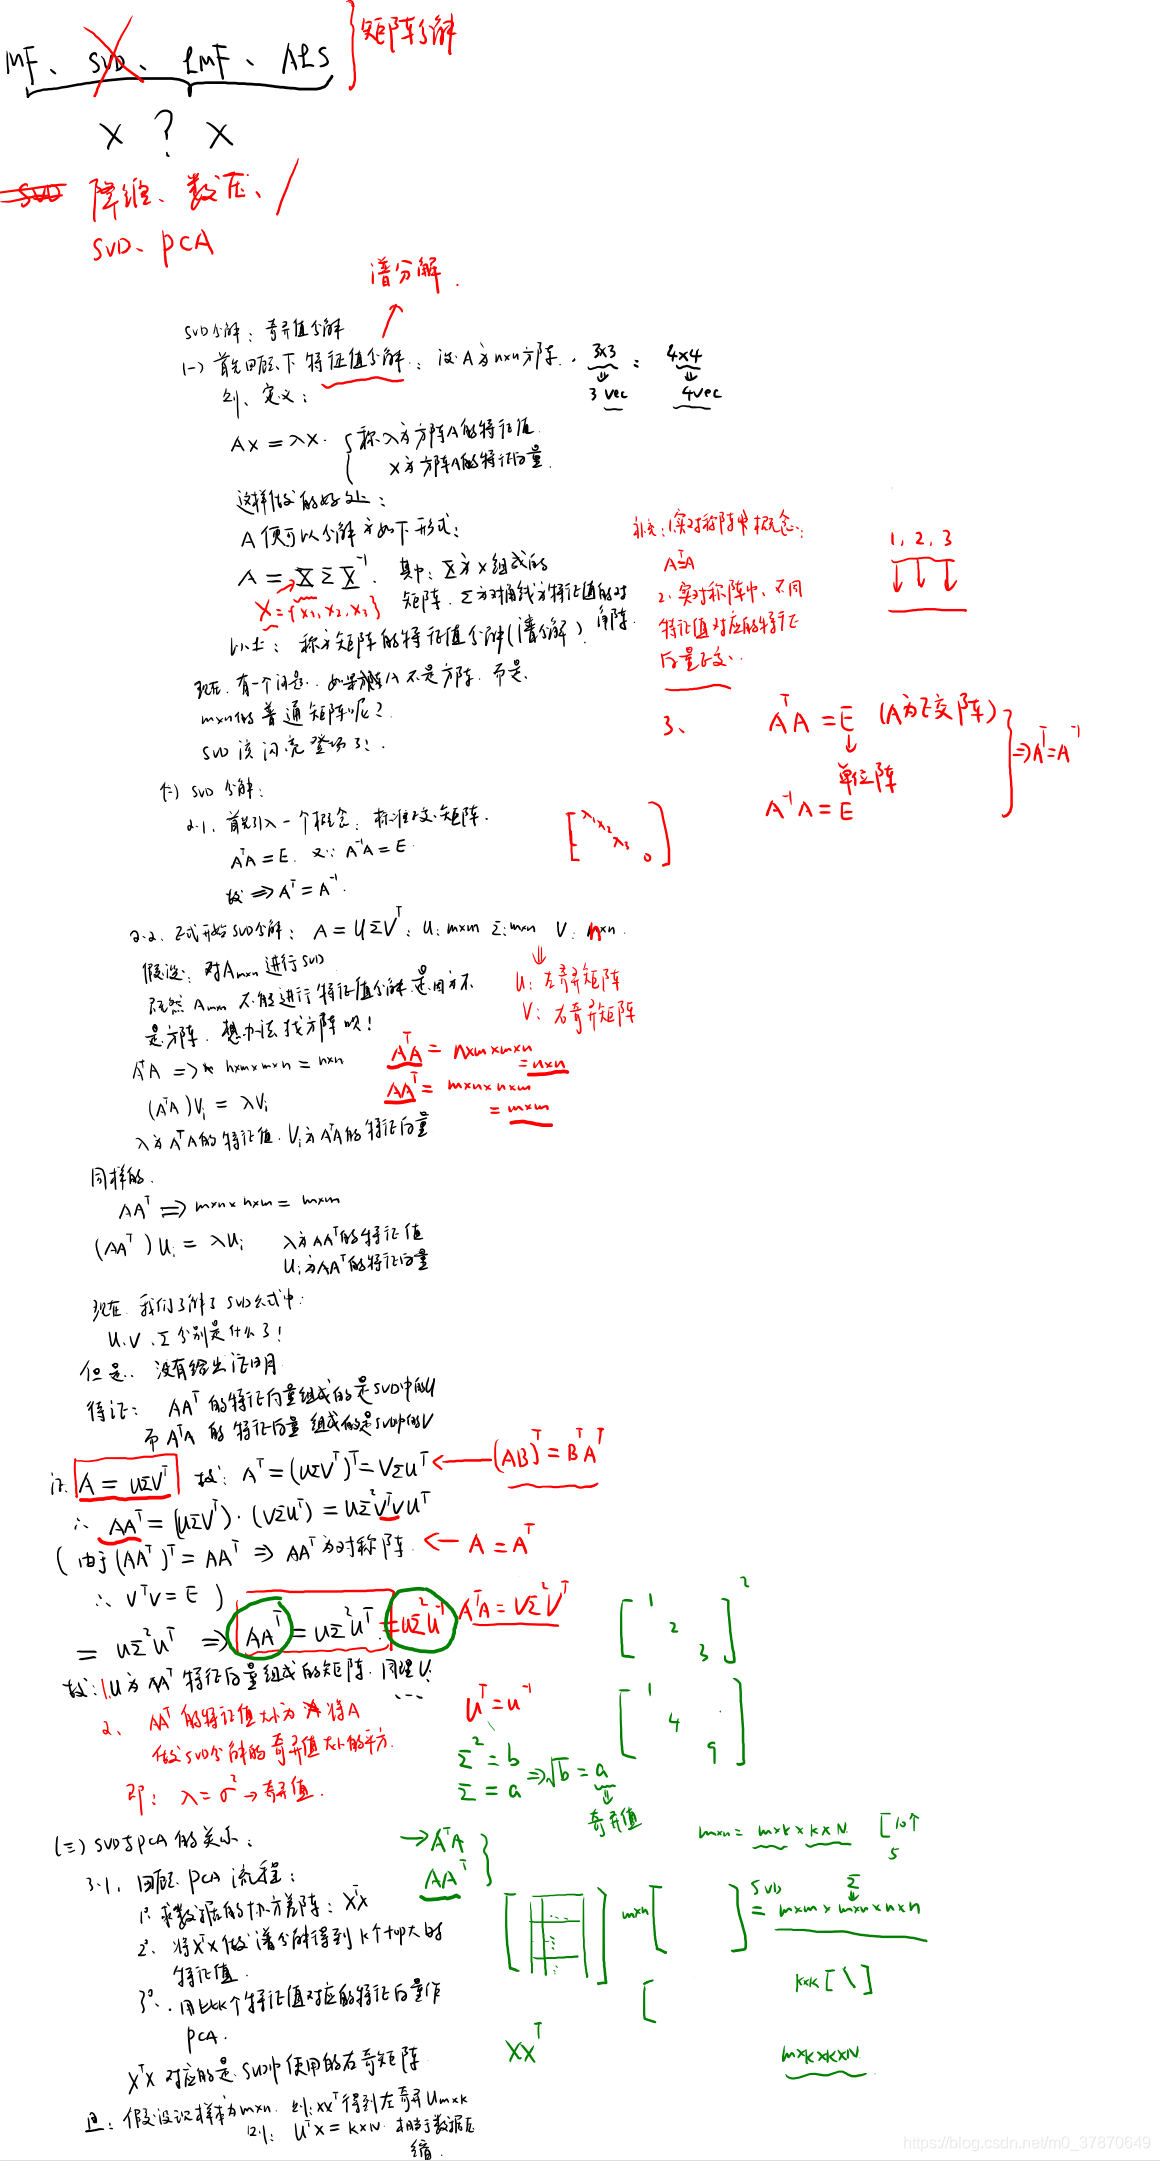 MF、SVD、LMF、ALS
矩阵分解
X ? X
SVD 降维、数压、
SVD、PCA
谱分解.
SVD分解：奇异值分解
(一) 首先回顾下特征值分解：设A为n×n方阵. 3×3 : 4×4
3 vec 4vec
则、定义：
AX = λX. { 称λ为方阵A的特征值.
X为方阵A的特征向量.
这样做的好处：
A便可以分解为如下形式：
A = X Σ X⁻¹. 其中：X为x组成的
矩阵. Σ为对角线为特征值的对
角阵.
X = {x₁, x₂, x₃}
以上：称为矩阵的特征值分解(谱分解)
补充：1.实对称阵概念：
AᵀA
2. 实对称阵中、不同
特征值对应的特征
向量正交.
1, 2, 3
3、 AᵀA = E (A为正交阵)
单位阵
A⁻¹A = E
⇒ Aᵀ = A⁻¹
现在.有一个问题. 如果A不是方阵.而是.
m×n的普通矩阵呢？
SVD该闪亮登场了！.
(二) SVD分解：
2.1. 首先引入一个概念：标准正交矩阵.
AᵀA = E. 又∵ A⁻¹A = E.
故 ⇒ Aᵀ = A⁻¹.
[λ₁ λ₂ λ₃ 0]
2.2. 正式开始SVD分解：A = UΣVᵀ; U: m×m Σ: m×n V: n×n.
U: 左奇异矩阵
V: 右奇异矩阵
假设：对Am×n进行SVD
既然Am×n不能进行特征值分解是因为不
是方阵. 想办法找方阵呗！
AᵀA ⇒ n×m×m×n = n×n
AᵀA = n×m×m×n
= n×n
AAᵀ = m×n×n×m
= m×m
(AᵀA)Vᵢ = λVᵢ
λ为AᵀA的特征值. Vᵢ为AᵀA的特征向量
同样的.
AAᵀ ⇒ m×n×n×m = m×m
(AAᵀ)Uᵢ = λUᵢ λ为AAᵀ的特征值
Uᵢ为AAᵀ的特征向量
现在.我们了解了SVD公式中：
U.V.Σ分别是什么了！
但是.. 没有给出证明
待证： AAᵀ的特征向量组成的是SVD中的U
而AᵀA的特征向量组成的是SVD中的V
证. A = UΣVᵀ 故：Aᵀ = (UΣVᵀ)ᵀ = VΣUᵀ ← (AB)ᵀ = BᵀAᵀ
∴ AAᵀ = (UΣVᵀ)·(VΣUᵀ) = UΣ²VᵀVUᵀ
(由于(AAᵀ)ᵀ = AAᵀ ⇒ AAᵀ为对称阵. ← A = Aᵀ
∴ VᵀV = E )
= UΣ²Uᵀ ⇒ AAᵀ = UΣ²Uᵀ = UΣ²U⁻¹ AᵀA = VΣ²Vᵀ
[1 2 3]²
故：1.U为AAᵀ特征向量组成的矩阵. 同理V. ...
[1 4 9]
2、 AAᵀ的特征值大小为将A
做SVD分解的奇异值大小的平方.
即： λ = σ² → 奇异值.
Uᵀ = U⁻¹
Σ² = b
Σ = a ⇒ √b = a
奇异值
(三) SVD与PCA的关系：
→ AᵀA
AAᵀ
m×n = m×k × k×N [10个
5
3.1. 回顾PCA流程：
1°. 求数据的协方差阵：XᵀX
2°. 将XᵀX做谱分解得到k个top大的
特征值.
3°. 用此k个特征值对应的特征向量作
PCA.
m×n [ ] SVD = m×m × m×n × n×n
Σ
k×k [\]
XXᵀ
m×k×k×N
XᵀX对应的是SVD中使用的右奇矩阵
且：假设设样本为m×n. 则：XXᵀ得到左奇异Um×k
则： UᵀX = k×N. 相当于数据压
缩.
https://blog.csdn.net/m0_37870649